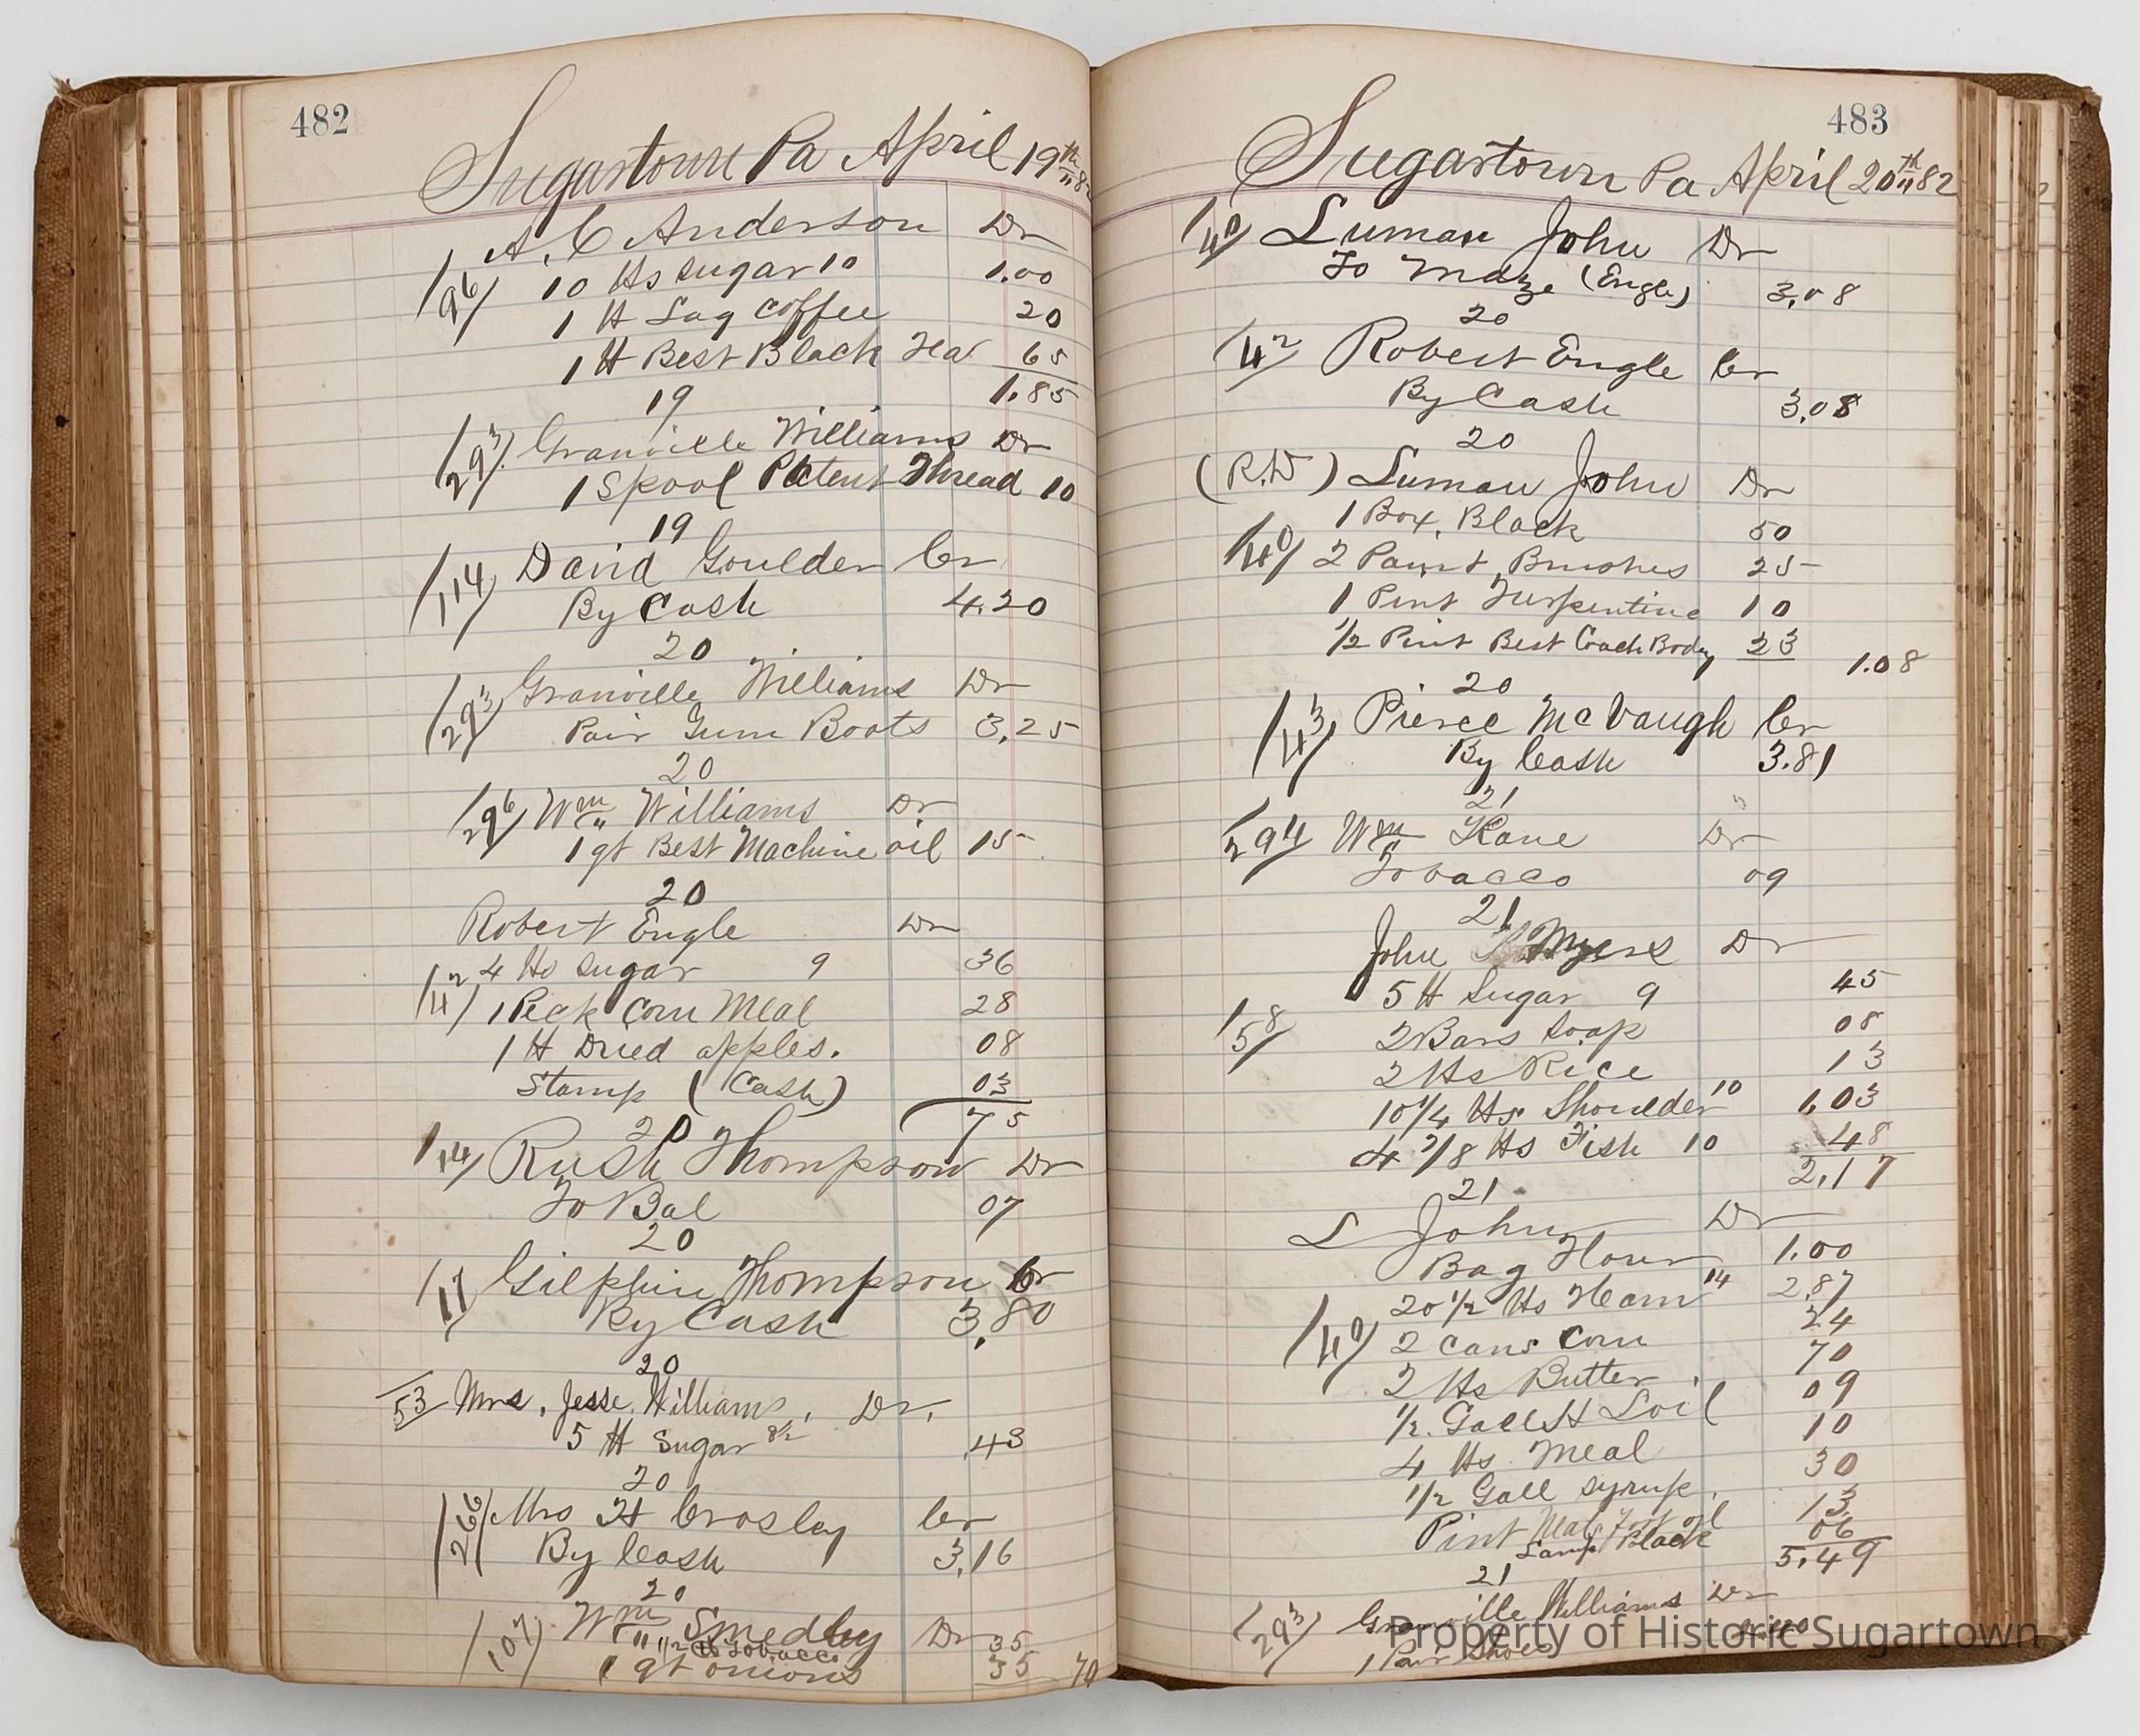 482
Sugartown Pa April 19th 82
A. C Anderson Dr
/96/ 10 lbs Sugar 10 1.00
1 lb Lag Coffee 20
1 lb Best Black Tea 65
1.85
19
/293/ Granville Williams Dr
1 Spool Patent Thread 10
19
/114/ David Goulder Cr
By Cash 4.20
20
/293/ Granville Williams Dr
Pair Gum Boots 3,25
20
/296/ Wm Williams Dr
1 qt Best Machine oil 15
20
Robert Engle Dr
4 lbs Sugar 9 36
/42/ 1 Peck Corn Meal 28
1 lb Dried apples. 08
Stamp (Cash) 03
75
20
/14/ Rush Thompson Dr
To Bal 07
20
/17/ Gilphin Thompson Cr
By Cash 3,80
20
/53/ Mrs, Jesse Williams, Dr,
5 lb Sugar 8½ ,43
20
/266/ Mrs H Crosley Cr
By Cash 3,16
20
/107/ Wm Smedley Dr
1/2 lb Tobacco 35
1 qt onions 35 70
483
Sugartown Pa April 20th 82
/40/ Luman John Dr
To Mdze (Engle) 3,08
20
/42/ Robert Engle Cr
By Cash 3,08
20
(R.D) Luman John Dr
1 Box, Black 50
/40/ 2 Paint Brushes 25
1 Pint Turpentine 10
½ Pint Best Coach Body 23 1.08
20
/43/ Pierce McVaugh Cr
By Cash 3.81
21
/294/ Wm Kane Dr
Tobacco 09
21
John Myers Dr
5 lb Sugar 9 45
/58/ 2 Bars Soap 08
2 lbs Rice 13
10¼ lbs Shoulder 10 1,03
4 7/8 lbs Fish 10 48
2,17
21
L John Dr
Bag Flour 1.00
20½ lbs Ham 14 2,87
/40/ 2 Cans Corn 24
2 lbs Butter 70
½ Gall H L oil 09
4 lbs Meal 10
½ Gall Syrup 30
Pint Neats Foot oil 13
Lamp Black 06
5,49
21
/293/ Granville Williams Dr
1 Pair Shoes
Property of Historic Sugartown